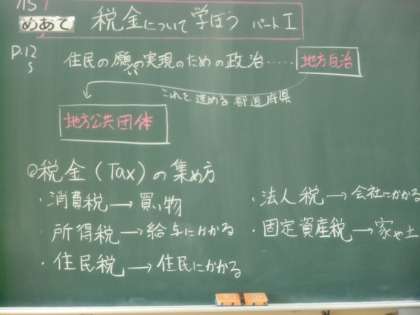 めあて 税金について学ぼう パートⅠ
P.12
住民の願いの実現のための政治……地方自治
これを進める都道府県
地方公共団体
税金(Tax)の集め方
・消費税→買い物
・法人税→会社にかかる
所得税→給与にかかる
・固定資産税→家や土
・住民税→住民にかかる